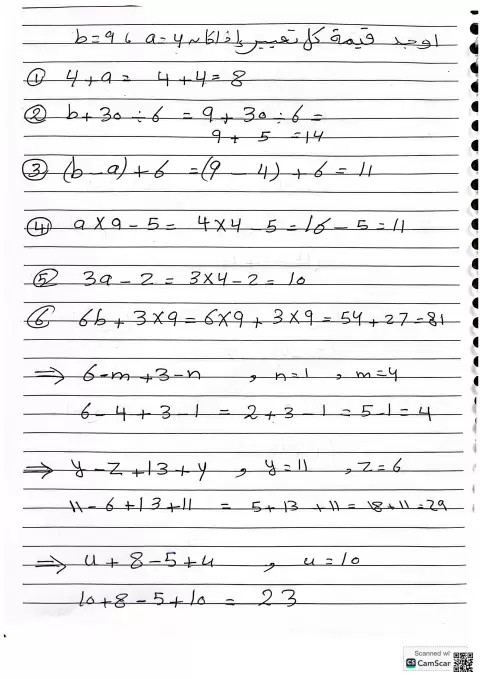 اوجد قيمة كل تعبير إذا كان a=4 ، b=9
① 4+a= 4+4=8
② b+30÷6 = 9+30÷6=
9+ 5 =14
③ (b-a)+6 =(9-4)+6=11
④ a×9-5= 4×4-5=16-5=11
⑤ 3a-2=3×4-2=10
⑥ 6b+3×9=6×9+3×9=54+27=81
⇒ 6-m+3-n , n=1 , m=4
6-4+3-1 = 2+3-1=5-1=4
⇒ y-z+13+y , y=11 , z=6
11-6+13+11 = 5+13+11=18+11=29
⇒ u+8-5+u , u=10
10+8-5+10 = 23
Scanned wi
CS CamScar